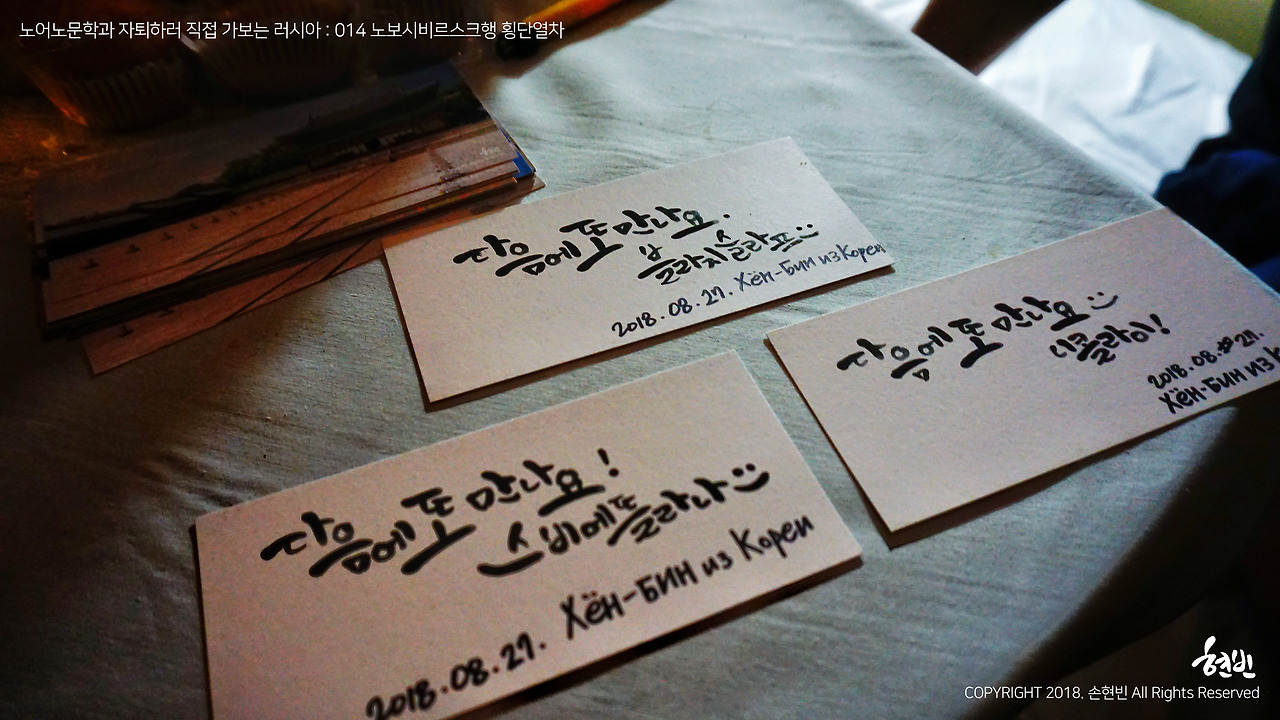 노어노문학과 자퇴하러 직접 가보는 러시아 : 014 노보시비르스크행 횡단열차
다음에 또 만나요.
블라지슬라프
2018.08.27. Хён-Бин из Кореи
다음에 또 만나요
니콜라이!
2018.08. 27.
Хён-Бин из К
다음에 또 만나요!
스비에뜰라나
Хён-Бин из Кореи
2018.08.27.
현빈
COPYRIGHT 2018. 손현빈 All Rights Reserved